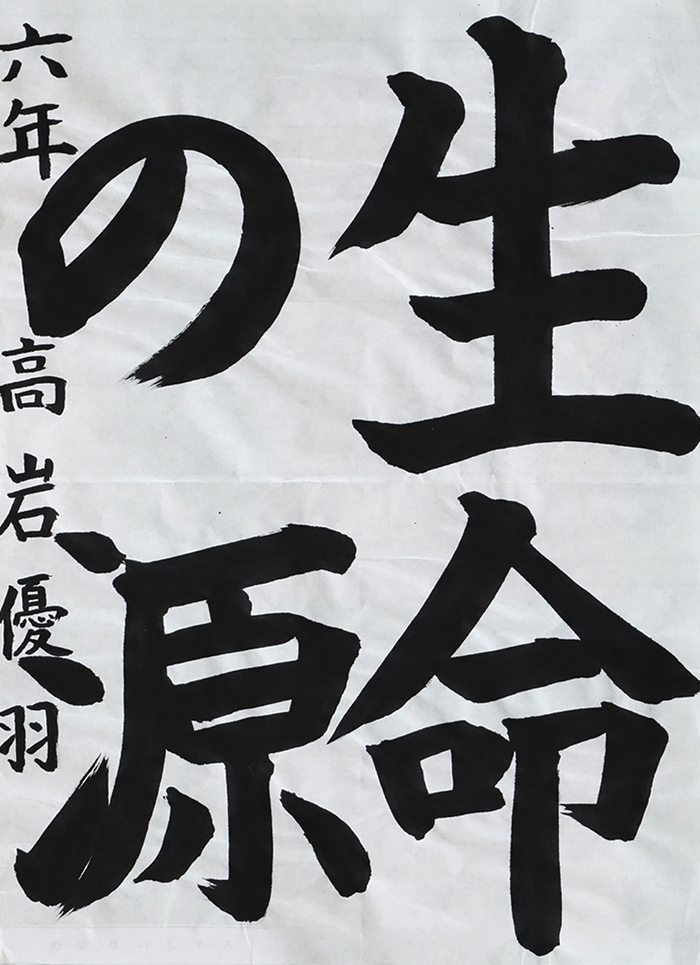 生命
の源
六年 高岩優羽